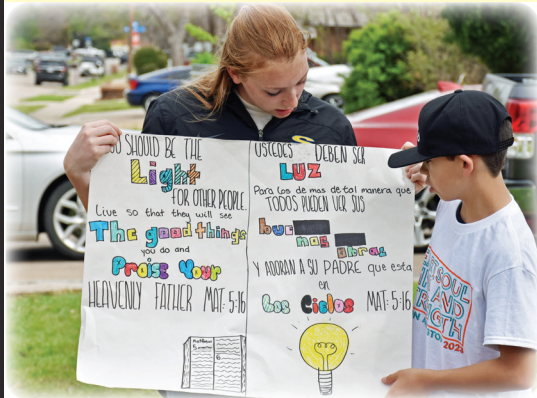 YOU SHOULD BE THE
Light
FOR OTHER PEOPLE.
Live so that they will see
The good things
you do and
Praise Your
HEAVENLY FATHER MAT: 5:16
USTEDES DEBEN SER
LUZ
Para los de mas de tal manera que
TODOS PUEDEN VER SUS
bue
nas
obras
Y ADORAN A SU PADRE que esta
en
Los Cielos MAT: 5:16
SOUL
AND